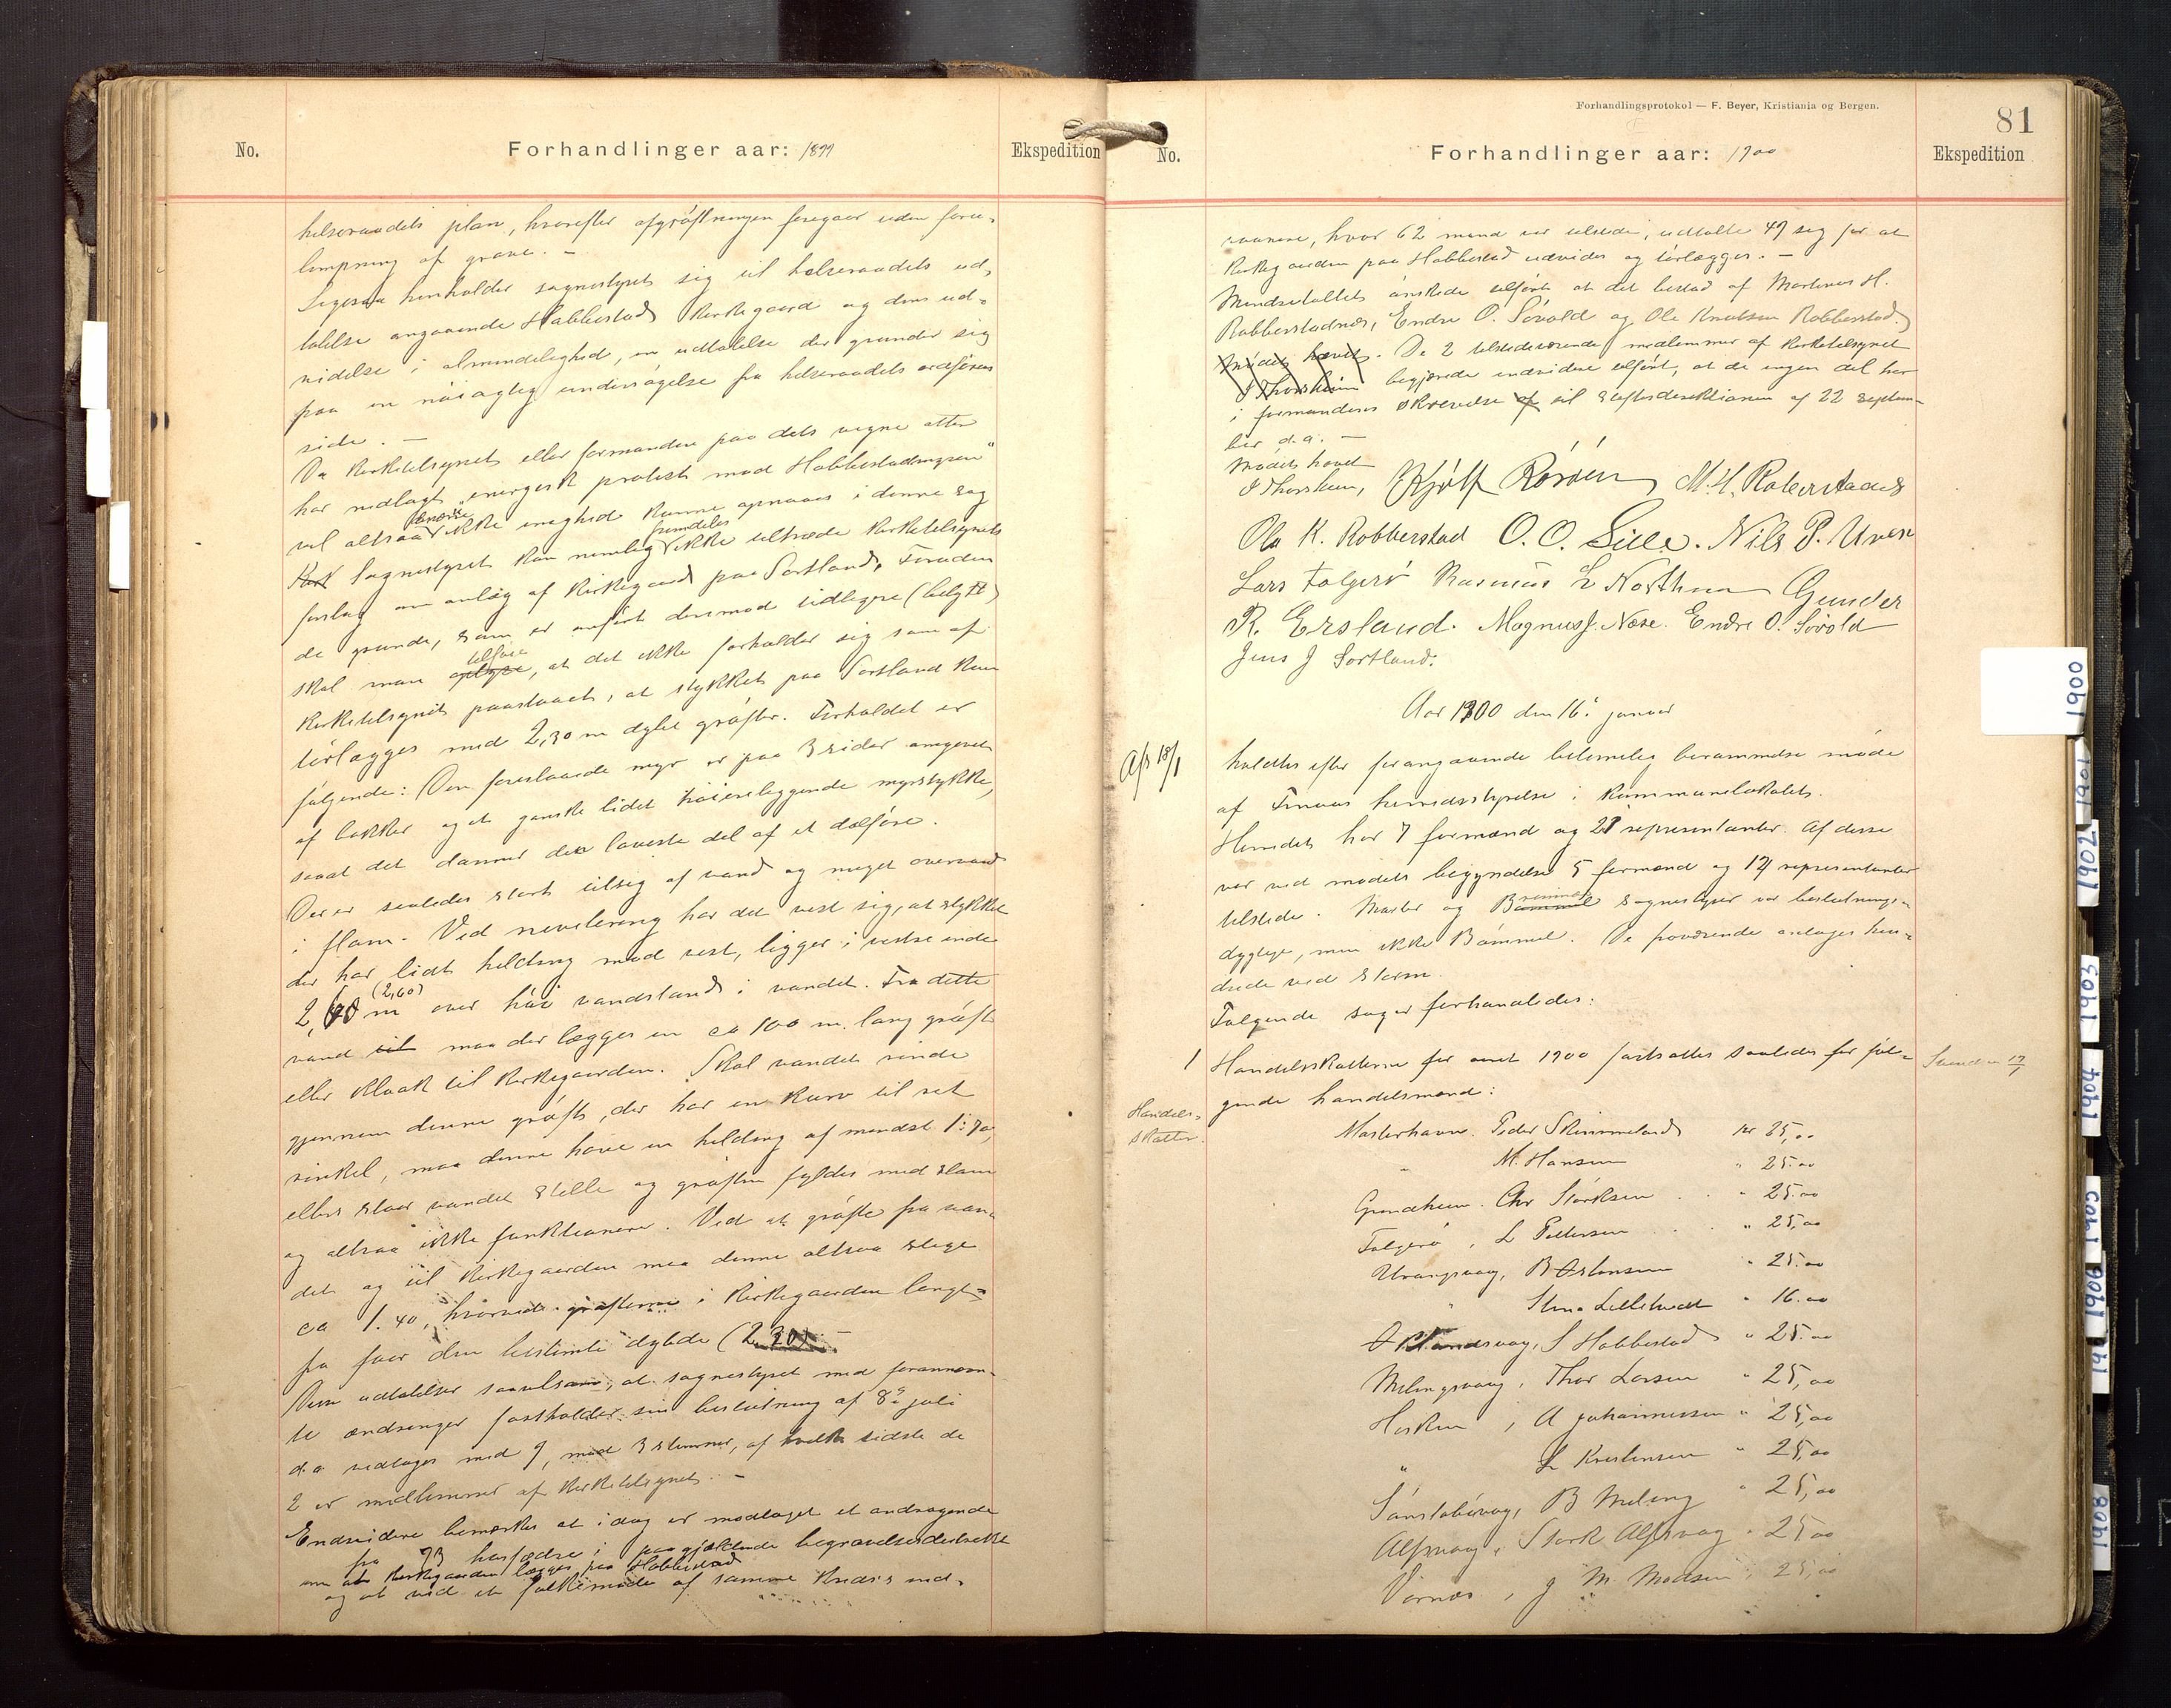 No.
Forhandlinger aar: 1899
Ekspedition
helseraadets plan, hvorefter afgrøftningen foregaar uden foru-
lempning af grave. -
Ligesaa henholder sognestyret sig til helseraadets ud-
talelse angaaende Habbestad kirkegaard og dens ud-
videlse i almindelighed, en udtalelse der grunder sig
paa en nøiagtig undersøgelse fra helseraadets ordførers
side. -
Da kirketilsynet eller formanden paa dets vegne atter
har nedlagt "energisk protest mod Habbestadmyren"
vil altsaa ikke enighed kunne opnaaes i denne sag
Sognestyret kan nemlig fremdeles ikke tiltræde kirketilsynets
forslag om anlæg af kirkegaard paa Sortland. Foruden
de grunde, som er anført derimod tidligere (belyst)
skal man tilføie, at det ikke forholder sig som af
kirketilsynet paastaaet, at stykket paa Sortland kan
tørlægges med 2,30 m dybe grøfter. Forholdet er
følgende: Den foreslaaede myr er paa 3 sider omgivet
af bakker og et ganske lidet høiereliggende myrstykke,
saaat det danner den laveste del af et dalføre.
Der er saaledes stort tilsig af vand og meget overvand
i flom. Ved nivelering har det vist sig, at stykket
der har lidt helding mod vest, ligger i vestre ende
(2,60)
2,60 m over høi vandstand i vandet. Fra dette
vand maa der lægges en ca 100 m. lang grøft
eller kloak til kirkegaarden. Skal vandet rinde
gjennem denne grøft, der har en kurv til ret
vinkel, maa denne have en helding af mindst 1:70,
ellers staar vandet stille og grøften fyldes med slam
og altsaa ikke funktionere. Ved at grøfte fra van-
det og til kirkegaarden maa denne altsaa stige
ca 1.40, hvorved grøfterne i kirkegaarden langt-
fra faar den bestemte dybde (2.30). -
Disse udtalelser saavelsom, at sognestyret med forannævn-
te ændringer fastholder sin beslutning af 8de juli
d.a. vedtages med 9, mod 3 stemmer, af hvilke sidste de
2 er medlemmer af kirketilsynet. -
Endvidere bemærkes at idag er modtaget et andragende
fra 93 husfædre i paagjældende begravelsesdistrikt
om at kirkegaarden lægges paa Habbestad
og at ved et folkemøde af samme kreds's ind-
Forhandlingsprotokol — F. Beyer, Kristiania og Bergen.
81
No.
Forhandlinger aar: 1900
Ekspedition
vaanere, hvor 62 mænd var tilstede, udtalte 47 sig for at
kirkegaarden paa Habbestad udvides og tørlægges. -
Mindretallet ønskede tilført at det bestod af Martinus H.
Robberstadnæs, Endre O. Søvold og Ole Knutsen Robberstad.
Mødet hævet. De 2 tilstedeværende medlemmer af kirketilsynet
I Thorsheim begjærede endvidere tilført, at de ingen del har
i formandens skrivelse af til stiftsdirektionen af 22 septem-
ber d.a. -
Mødet hævet
I Thorsheim, Kjølf Røroen M. H. Roberstadnes
Ole K. Robberstad O. O. Lille. Nils P. Urex
Lars Folgerø Rasmus L Northun Gunder
R. Ersland. Magnus J. Næse. Endre O. Søvold
Jens J Sortland.
Aar 1900 den 16. januar
Afs 18/1
holdtes efter forangaaende betimelig berammelse møde
af Finnaas herredsstyrelse i kommunelokalet.
Herredet har 7 formænd og 21 representanter. Af disse
var ved mødets begyndelse 5 formænd og 14 representanter
tilstede. Moster og Bremnes sognestyrer var beslutnings-
dygtige, men ikke Bømmel. De fraværende antages hin-
drede ved storm.
Følgende sager forhandledes:
1 Handelsskatterne for aaret 1900 fastsattes saaledes for føl-
gende handelsmænd:
Handels-
skatter.
Mosterhavn. Peder Skimmeland kr 25,00
" M. Hansen " 25.00
Grindheim. Chr Størksen " 25.00
Folgerø, L Pedersen " 25,00
Urangsvaag, B Østensen " 25.00
" Sten Lillitvedt " 16.00
Øklandsvag, S Habbestad " 25.00
Melingsvaag, Thor Larsen " 25,00
Hisken, A Johannessen " 25,00
" L Kristensen " 25,00
Sønstabøvag, B Meling " 25,00
Alfsvaag, Stork Alfsvag " 25.00
Vornes, J M. Madsen " 25,00
1900
1901
1902
1903
1904
1905
1906
1908